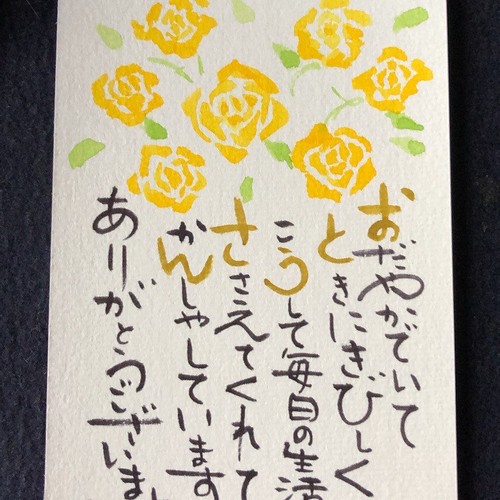 おだやかでいて
ときにきびしく
こうして毎日の生活
ささえてくれて
かんしゃしています
ありがとうございま